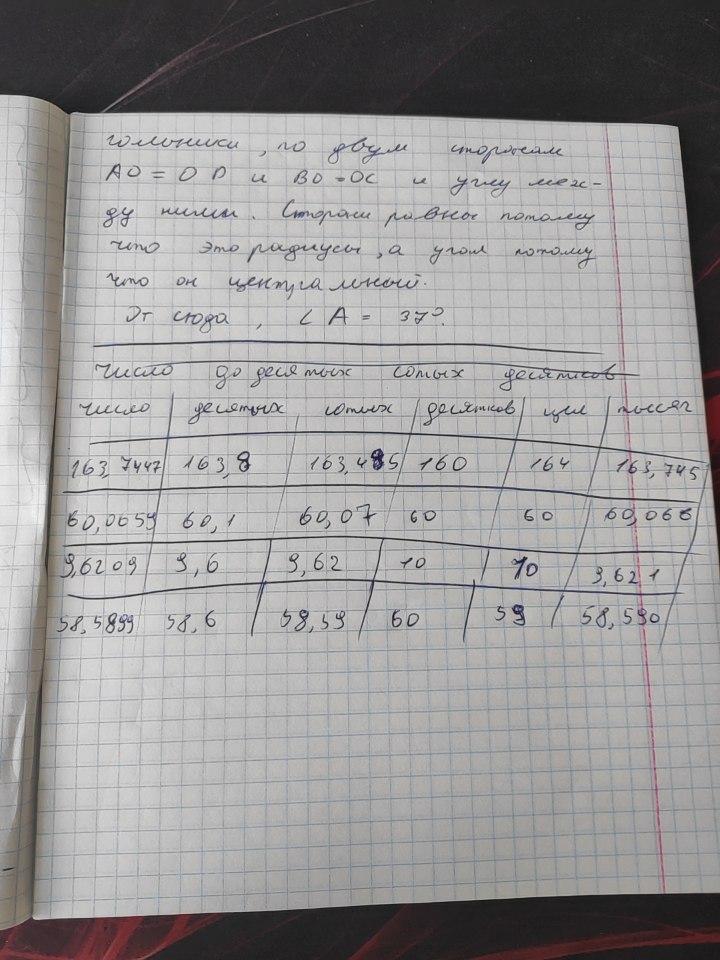 гольники, по двум сторонам
AO = OD и BO = OC и углу меж-
ду ними. Стороны равны потому
что это радиусы, а угол потому
что он центральный.
От сюда, ∠A = 37°.
Число до десятых сотых десятков
число десятых сотых десятков цел тысяч
163,7447 163,8 163,485 160 164 163,745
60,0659 60,1 60,07 60 60 60,066
9,6209 9,6 9,62 10 10 9,621
58,5899 58,6 58,59 60 59 58,590